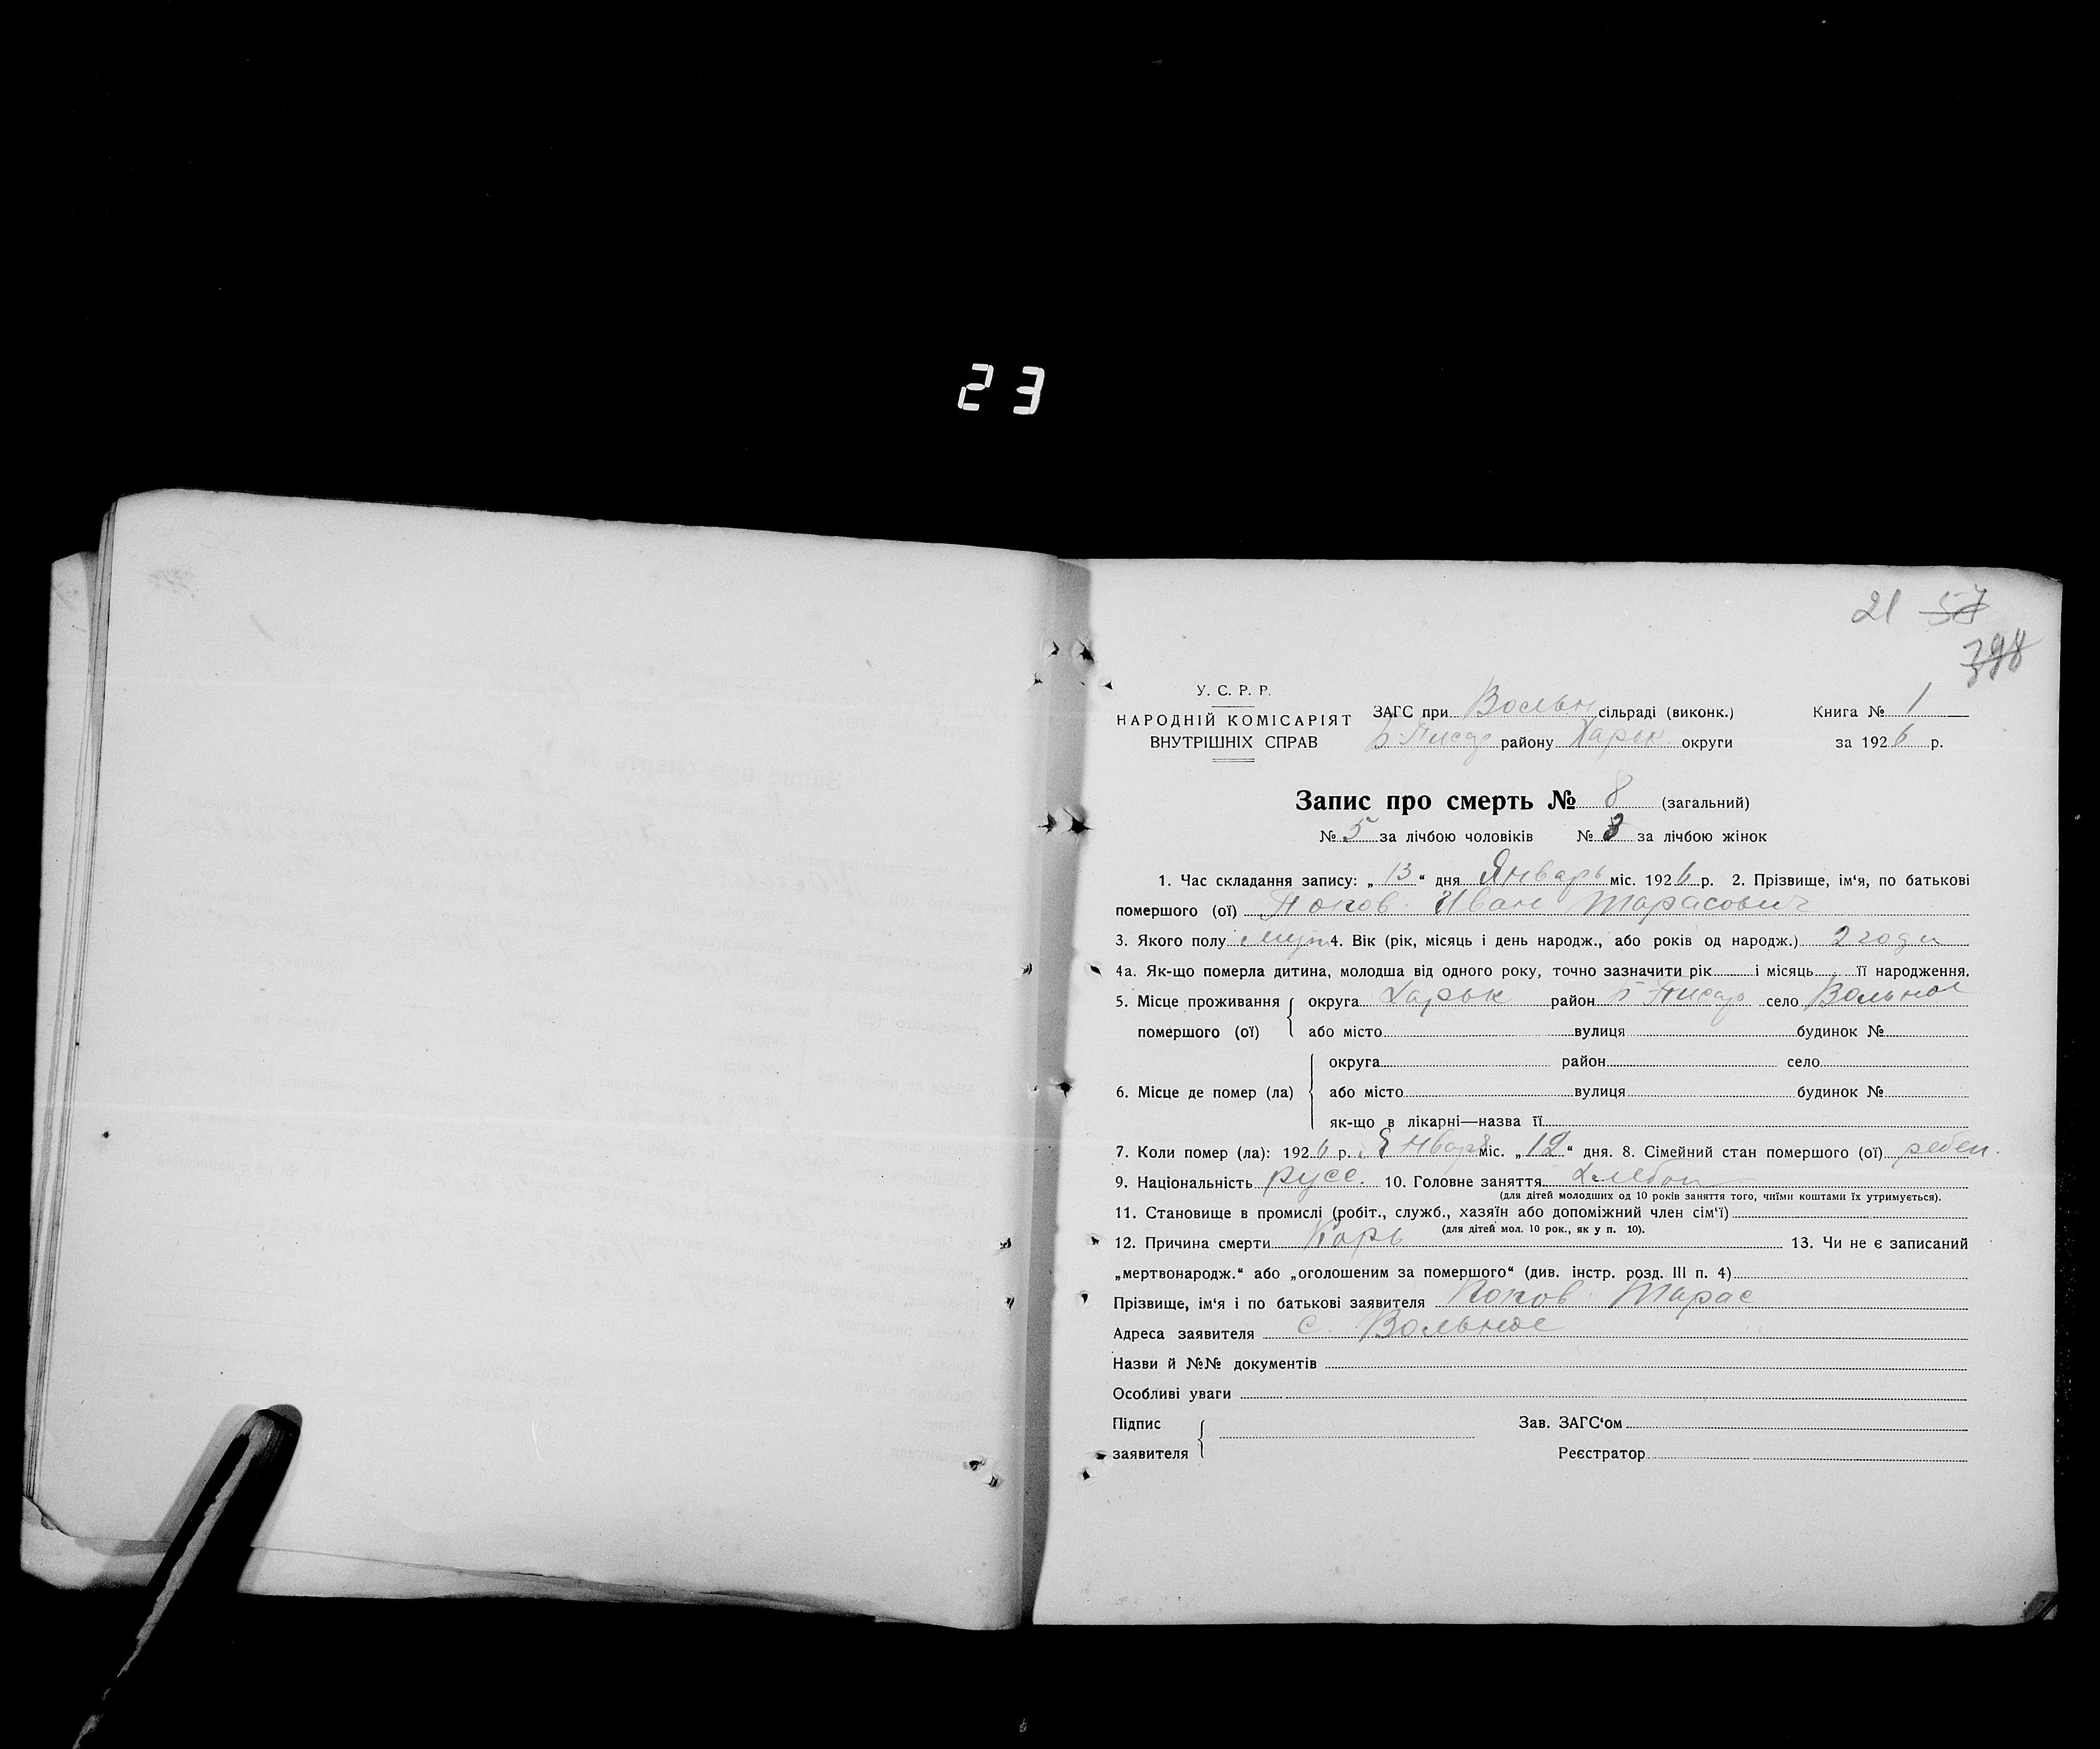 23
21 57
398
У. С. Р. Р.
НАРОДНІЙ КОМІСАРІЯТ
ВНУТРІШНІХ СПРАВ
ЗАГС при Вольн сільраді (виконк.)
Б-Писар району Харьк округи
Книга № 1
за 1926 р.
Запис про смерть № 8 (загальний)
№ 5 за лічбою чоловіків № 3 за лічбою жінок
1. Час складання запису: „13“ дня Январь міс. 1926 р. 2. Прізвище, ім‘я, по батькові
помершого (ої) Попов Иван Тарасович
3. Якого полу муж 4. Вік (рік, місяць і день народж., або років од народж.) 2 года
4а. Як-що померла дитина, молодша від одного року, точно зазначити рік і місяць її народження.
5. Місце проживання помершого (ої) округа Харьк район Б-Писар село Вольное
або місто вулиця будинок №
6. Місце де помер (ла) округа район село
або місто вулиця будинок №
як-що в лікарні—назва її
7. Коли помер (ла): 1926 р. Январь міс. „12“ дня. 8. Сімейний стан помершого (ої) ребен.
9. Національність русс. 10. Головне заняття Хлебоп
(для дітей молодших од 10 років заняття того, чиїми коштами їх утримується).
11. Становище в промислі (робіт., служб., хазяїн або допоміжний член сім‘ї)
(для дітей мол. 10 рок., як у п. 10).
12. Причина смерти Корь 13. Чи не є записаний
„мертвонародж.“ або „оголошеним за помершого“ (див. інстр. розд. III п. 4)
Прізвище, ім‘я і по батькові заявителя Попов Тарас
Адреса заявителя с. Вольное
Назви й №№ документів
Особливі уваги
Підпис заявителя
Зав. ЗАГС‘ом
Реєстратор